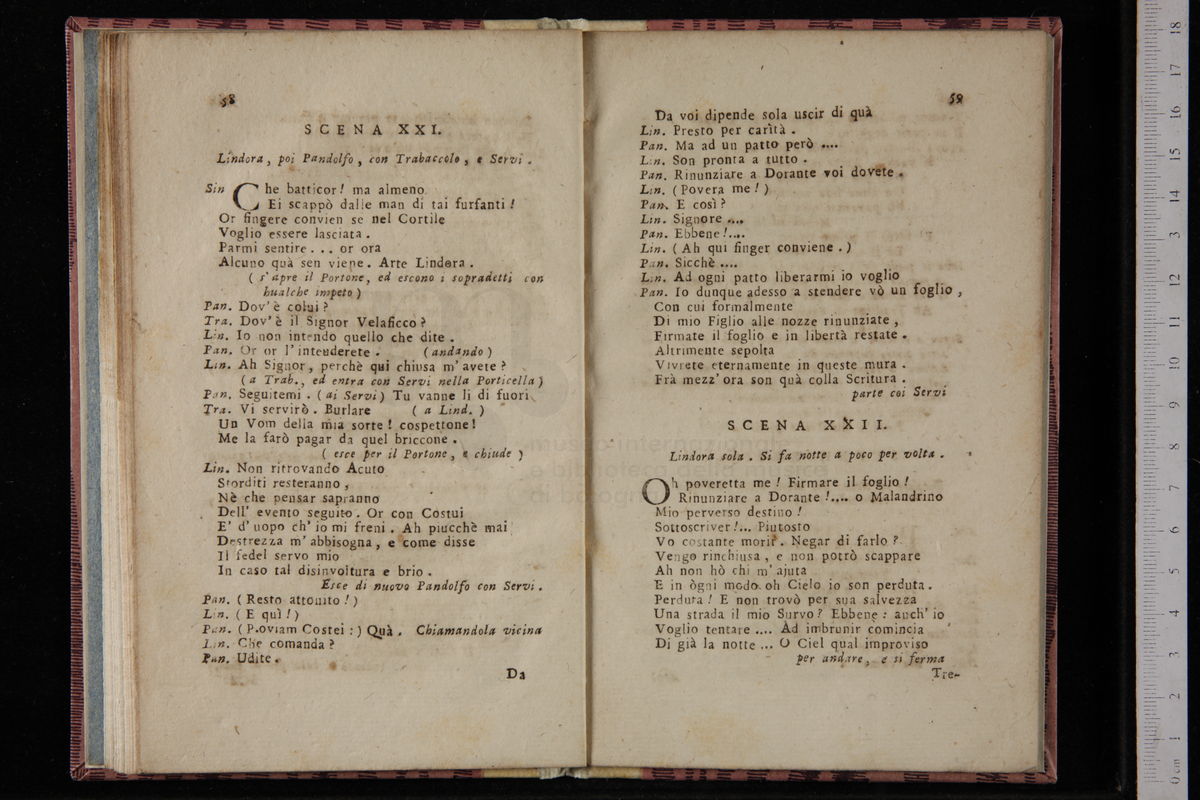 58
SCENA XXI.
Lindora, poi Pandolfo, con Trabaccolo, e Servi.
Sin Che batticor! ma almeno
Ei scappò dalle man di tai furfanti!
Or fingere convien se nel Cortile
Voglio essere lasciata.
Parmi sentire... or ora
Alcuno quà sen viene. Arte Lindora.
(s'apre il Portone, ed escono i sopradetti con
hualche impeto)
Pan. Dov'è colui?
Tra. Dov'è il Signor Velaficco?
Lin. Io non intendo quello che dite.
Pan. Or or l'intenderete. (andando)
Lin. Ah Signor, perchè qui chiusa m'avete?
(a Trab., ed entra con Servi nella Porticella)
Pan. Seguitemi. (ai Servi) Tu vanne lì di fuori
Tra. Vi servirò. Burlare (a Lind.)
Un Vom della mia sorte! cospettone!
Me la farò pagar da quel briccone.
(esce per il Portone, e chiude)
Lin. Non ritrovando Acuto
Storditi resteranno,
Nè che pensar sapranno
Dell' evento seguito. Or con Costui
E' d'uopo ch'io mi freni. Ah piucchè mai
Destrezza m'abbisogna, e come disse
Il fedel servo mio
In caso tal disinvoltura e brio.
Esce di nuovo Pandolfo con Servi.
Pan. (Resto attonito!)
Lin. (E quì!)
Pan. (Proviam Costei:) Quà. Chiamandola vicina
Lin. Che comanda?
Pan. Udite.
Da
59
Da voi dipende sola uscir di quà
Lin. Presto per carìtà.
Pan. Ma ad un patto però ....
Lin. Son pronta a tutto.
Pan. Rinunziare a Dorante voi dovete.
Lin. (Povera me!)
Pan. E così?
Lin. Signore ....
Pan. Ebbene!....
Lin. (Ah qui finger conviene.)
Pan. Sicchè ....
Lin. Ad ogni patto liberarmi io voglio
Pan. Io dunque adesso a stendere vò un foglio,
Con cui formalmente
Di mio Figlio alle nozze rinunziate,
Firmate il foglio e in libertà restate.
Altrimente sepolta
Vivrete eternamente in queste mura.
Frà mezz'ora son quà colla Scritura.
parte coi Servi
SCENA XXII.
Lindora sola. Si fa notte a poco per volta.
Oh poveretta me! Firmare il foglio!
Rinunziare a Dorante!.... o Malandrino
Mio perverso destino!
Sottoscriver!... Piutosto
Vo costante morir. Negar di farlo?
Vengo rinchiusa, e non potrò scappare
Ah non hò chi m'ajuta
E in ògni modo oh Cielo io son perduta.
Perduta! E non trovò per sua salvezza
Una strada il mio Survo? Ebbene: anch'io
Voglio tentare .... Ad imbrunir comincia
Di già la notte ... O Ciel qual improviso
per andare, e si ferma
Tre-
museo internazionale
e biblioteca
0 cm 1 2 3 4 5 6 7 8 9 10 11 12 13 14 15 16 17 18